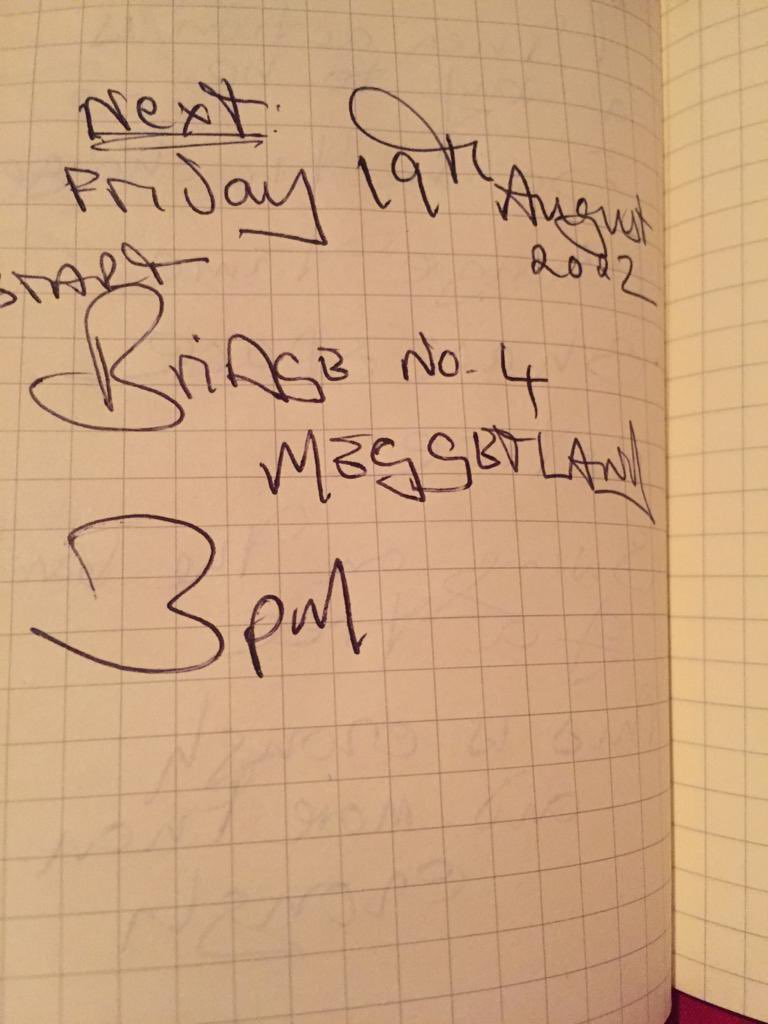 Next:
Friday 19th August
2022
START
BRIDGE No. 4
MEGGETLAND
3pm